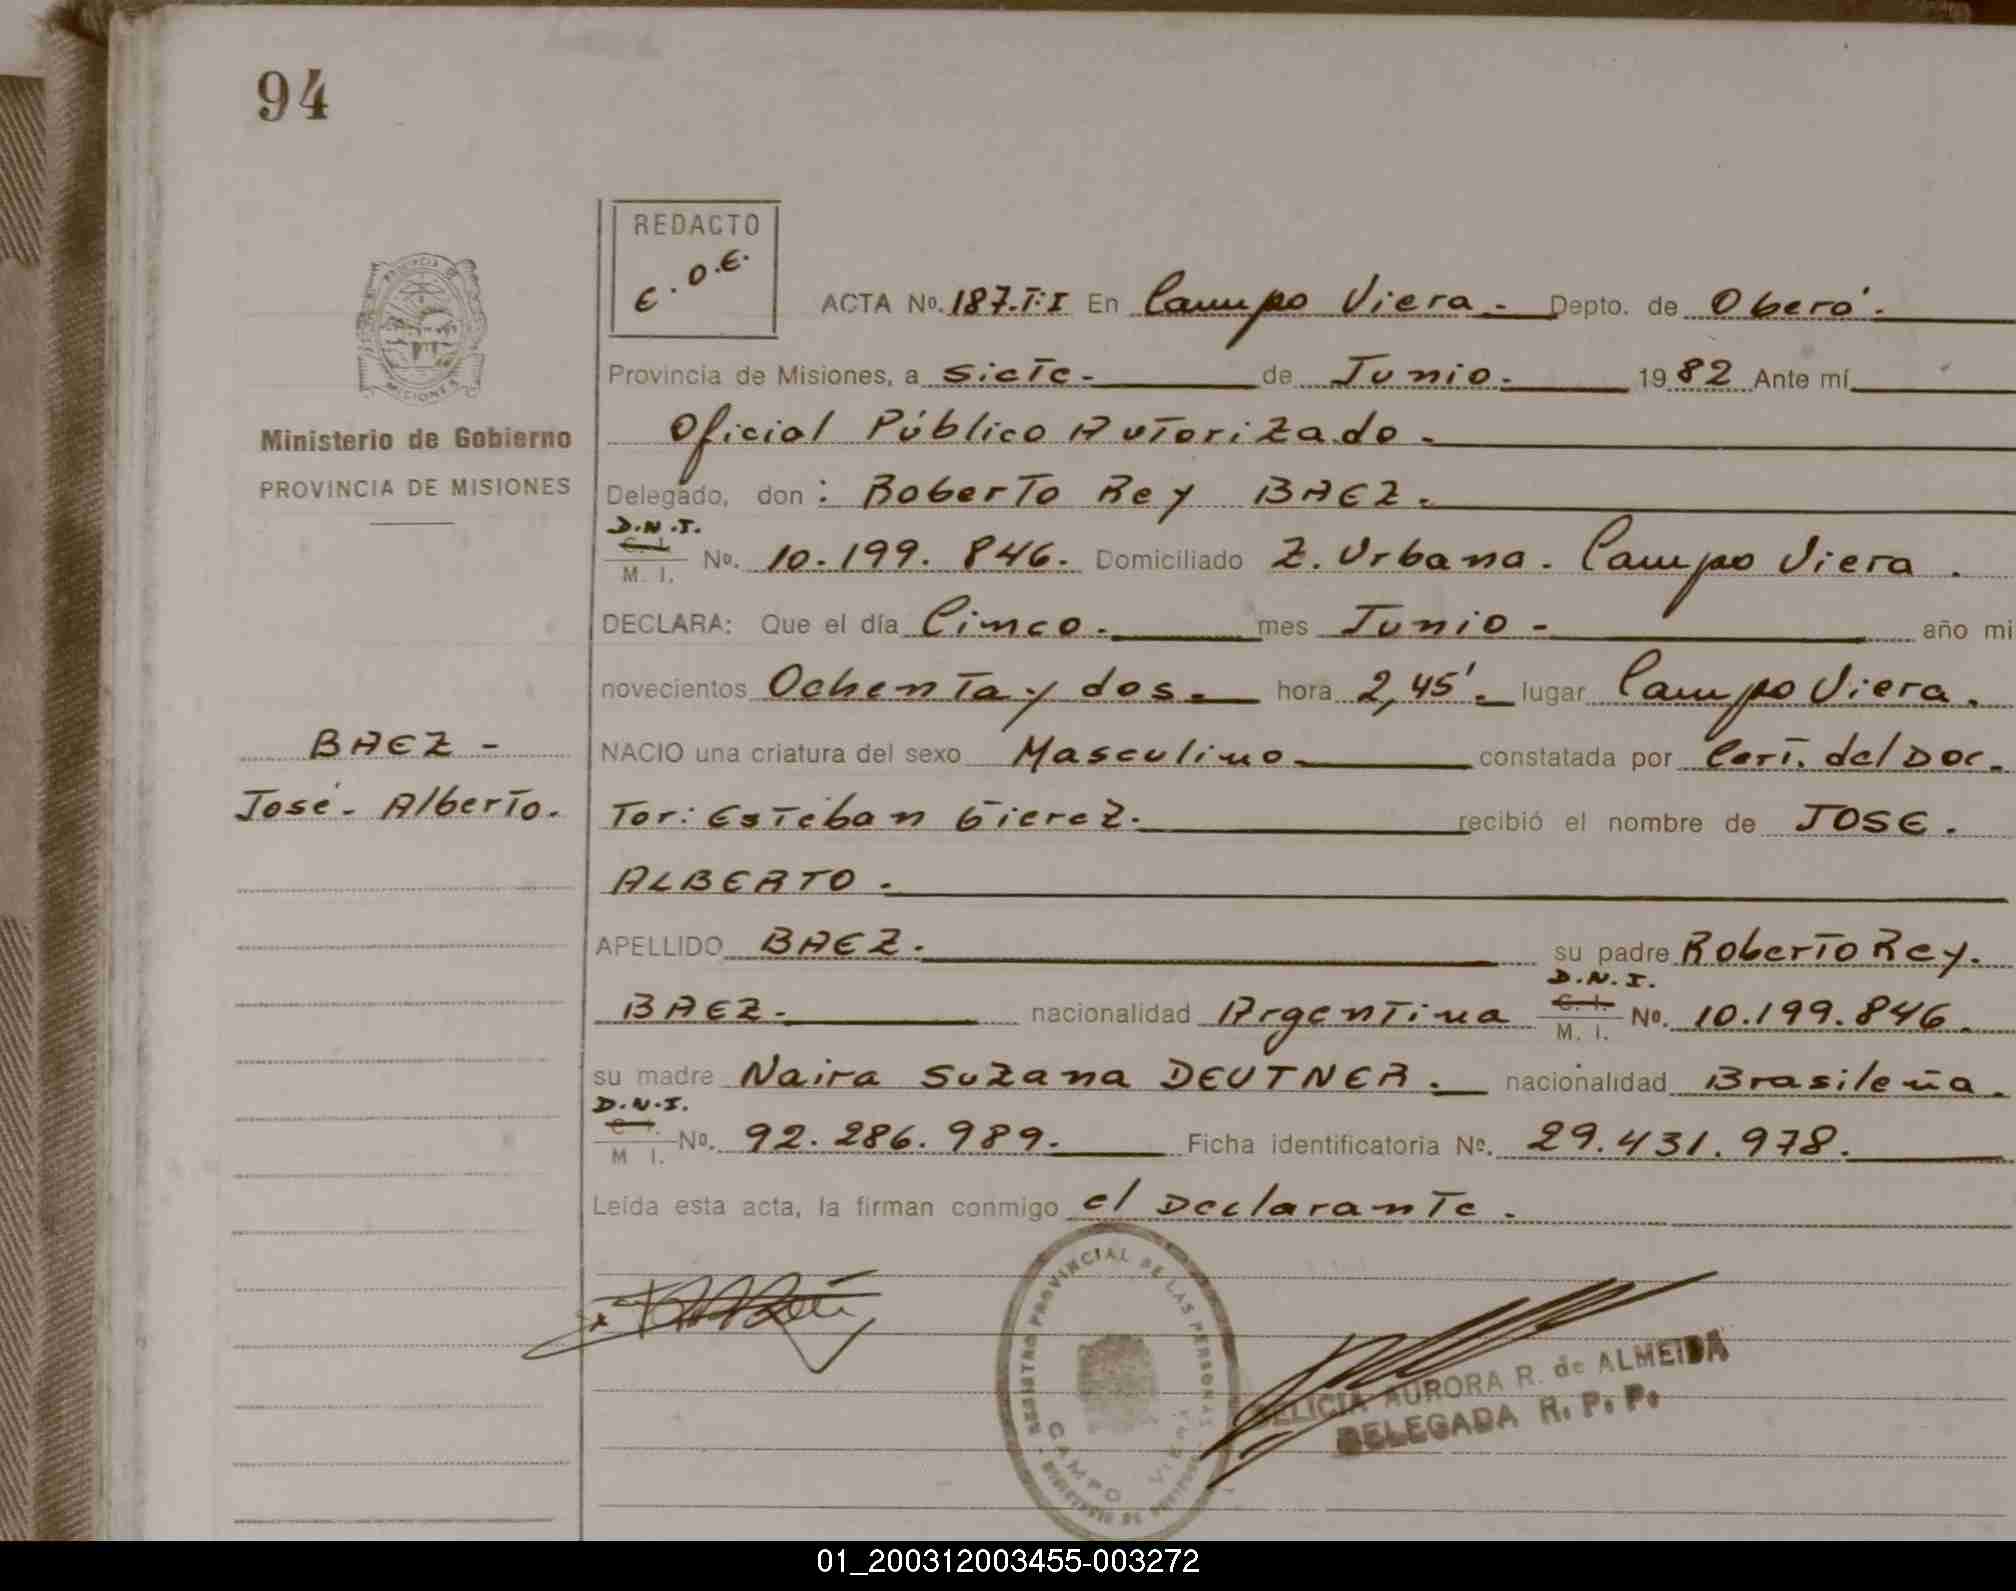 94
REDACTO
E.O.E.
ACTA No. 187.T:I En Campo Viera. Depto. de Oberá.
Provincia de Misiones, a siete. de Junio. 1982 Ante mí
Ministerio de Gobierno
Oficial Público Autorizado.
PROVINCIA DE MISIONES
Delegado, don: Roberto Rey BAEZ.
D.N.I.
C. I.
M. I. No. 10.199.846. Domiciliado Z. Urbana. Campo Viera.
DECLARA: Que el día Cinco. mes Junio - año mi
novecientos Ochenta y dos. hora 2,45'. lugar Campo Viera.
BAEZ -
NACIO una criatura del sexo Masculino constatada por Cert. del Doc.
José. Alberto.
Tor: Esteban Gierez. recibió el nombre de JOSE.
ALBERTO.
APELLIDO BAEZ. su padre Roberto Rey.
D.N.I.
BAEZ. nacionalidad Argentina C. I. M. I. No. 10.199.846.
su madre Naira Suzana DEUTNER. nacionalidad Brasileña.
D.N.I.
C. I.
M I. No. 92.286.989. Ficha identificatoria No. 29.431.978.
Leída esta acta, la firman conmigo el Declarante.
REGISTRO PROVINCIAL DE LAS PERSONAS
CAMPO VIERA
FELICIA AURORA R. de ALMEIDA
DELEGADA R. P. P.
PROVINCIA DE
MISIONES
01_200312003455-003272